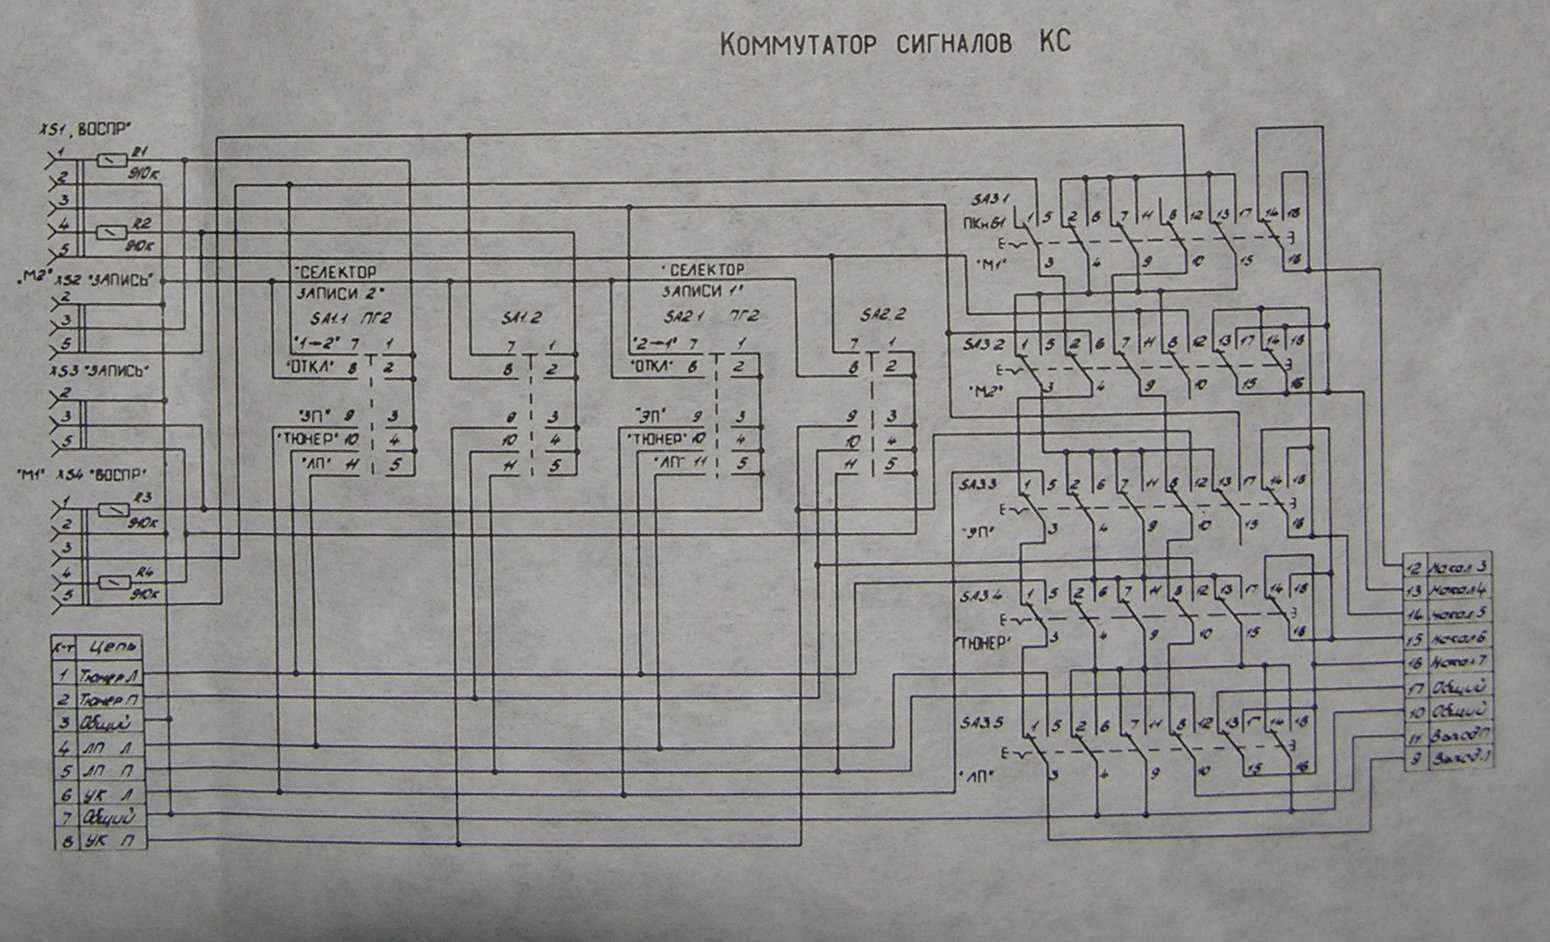 КОММУТАТОР СИГНАЛОВ КС
XS1 „ВОСПР"
1
R1
910к
2
3
4
R2
910к
5
„М2" XS2 "ЗАПИСЬ"
2
3
5
XS3 "ЗАПИСЬ"
2
3
5
"М1" XS4 "ВОСПР"
1
R3
910к
2
3
4
R4
910к
5
"СЕЛЕКТОР
ЗАПИСИ 2"
SA1.1 ПГ2
"1-2" 7 1
"ОТКЛ" 8 2
"ЭП" 9 3
"ТЮНЕР" 10 4
"ЛП" 11 5
SA1.2
7 1
8 2
9 3
10 4
11 5
"СЕЛЕКТОР
ЗАПИСИ 1"
SA2.1 ПГ2
"2-1" 7 1
"ОТКЛ" 8 2
"ЭП" 9 3
"ТЮНЕР" 10 4
"ЛП" 11 5
SA2.2
7 1
8 2
9 3
10 4
11 5
SA3.1
ПКн61
1 5 2 6 7 11 8 12 13 17 14 18
"М1"
3 4 9 10 15 16
SA3.2
1 5 2 6 7 11 8 12 13 17 14 18
"М2"
3 4 9 10 15 16
SA3.3
1 5 2 6 7 11 8 12 13 17 14 18
"ЭП"
3 4 9 10 15 16
SA3.4
1 5 2 6 7 11 8 12 13 17 14 18
"ТЮНЕР"
3 4 9 10 15 16
SA3.5
1 5 2 6 7 11 8 12 13 17 14 18
"ЛП"
3 4 9 10 15 16
К-т Цепь
1 Тюнер Л
2 Тюнер П
3 Общий
4 ЛП Л
5 ЛП П
6 УК Л
7 Общий
8 УК П
12 Накал 3
13 Накал 4
14 Накал 5
15 Накал 6
16 Накал 7
17 Общий
10 Общий
11 Выход П
9 Выход Л